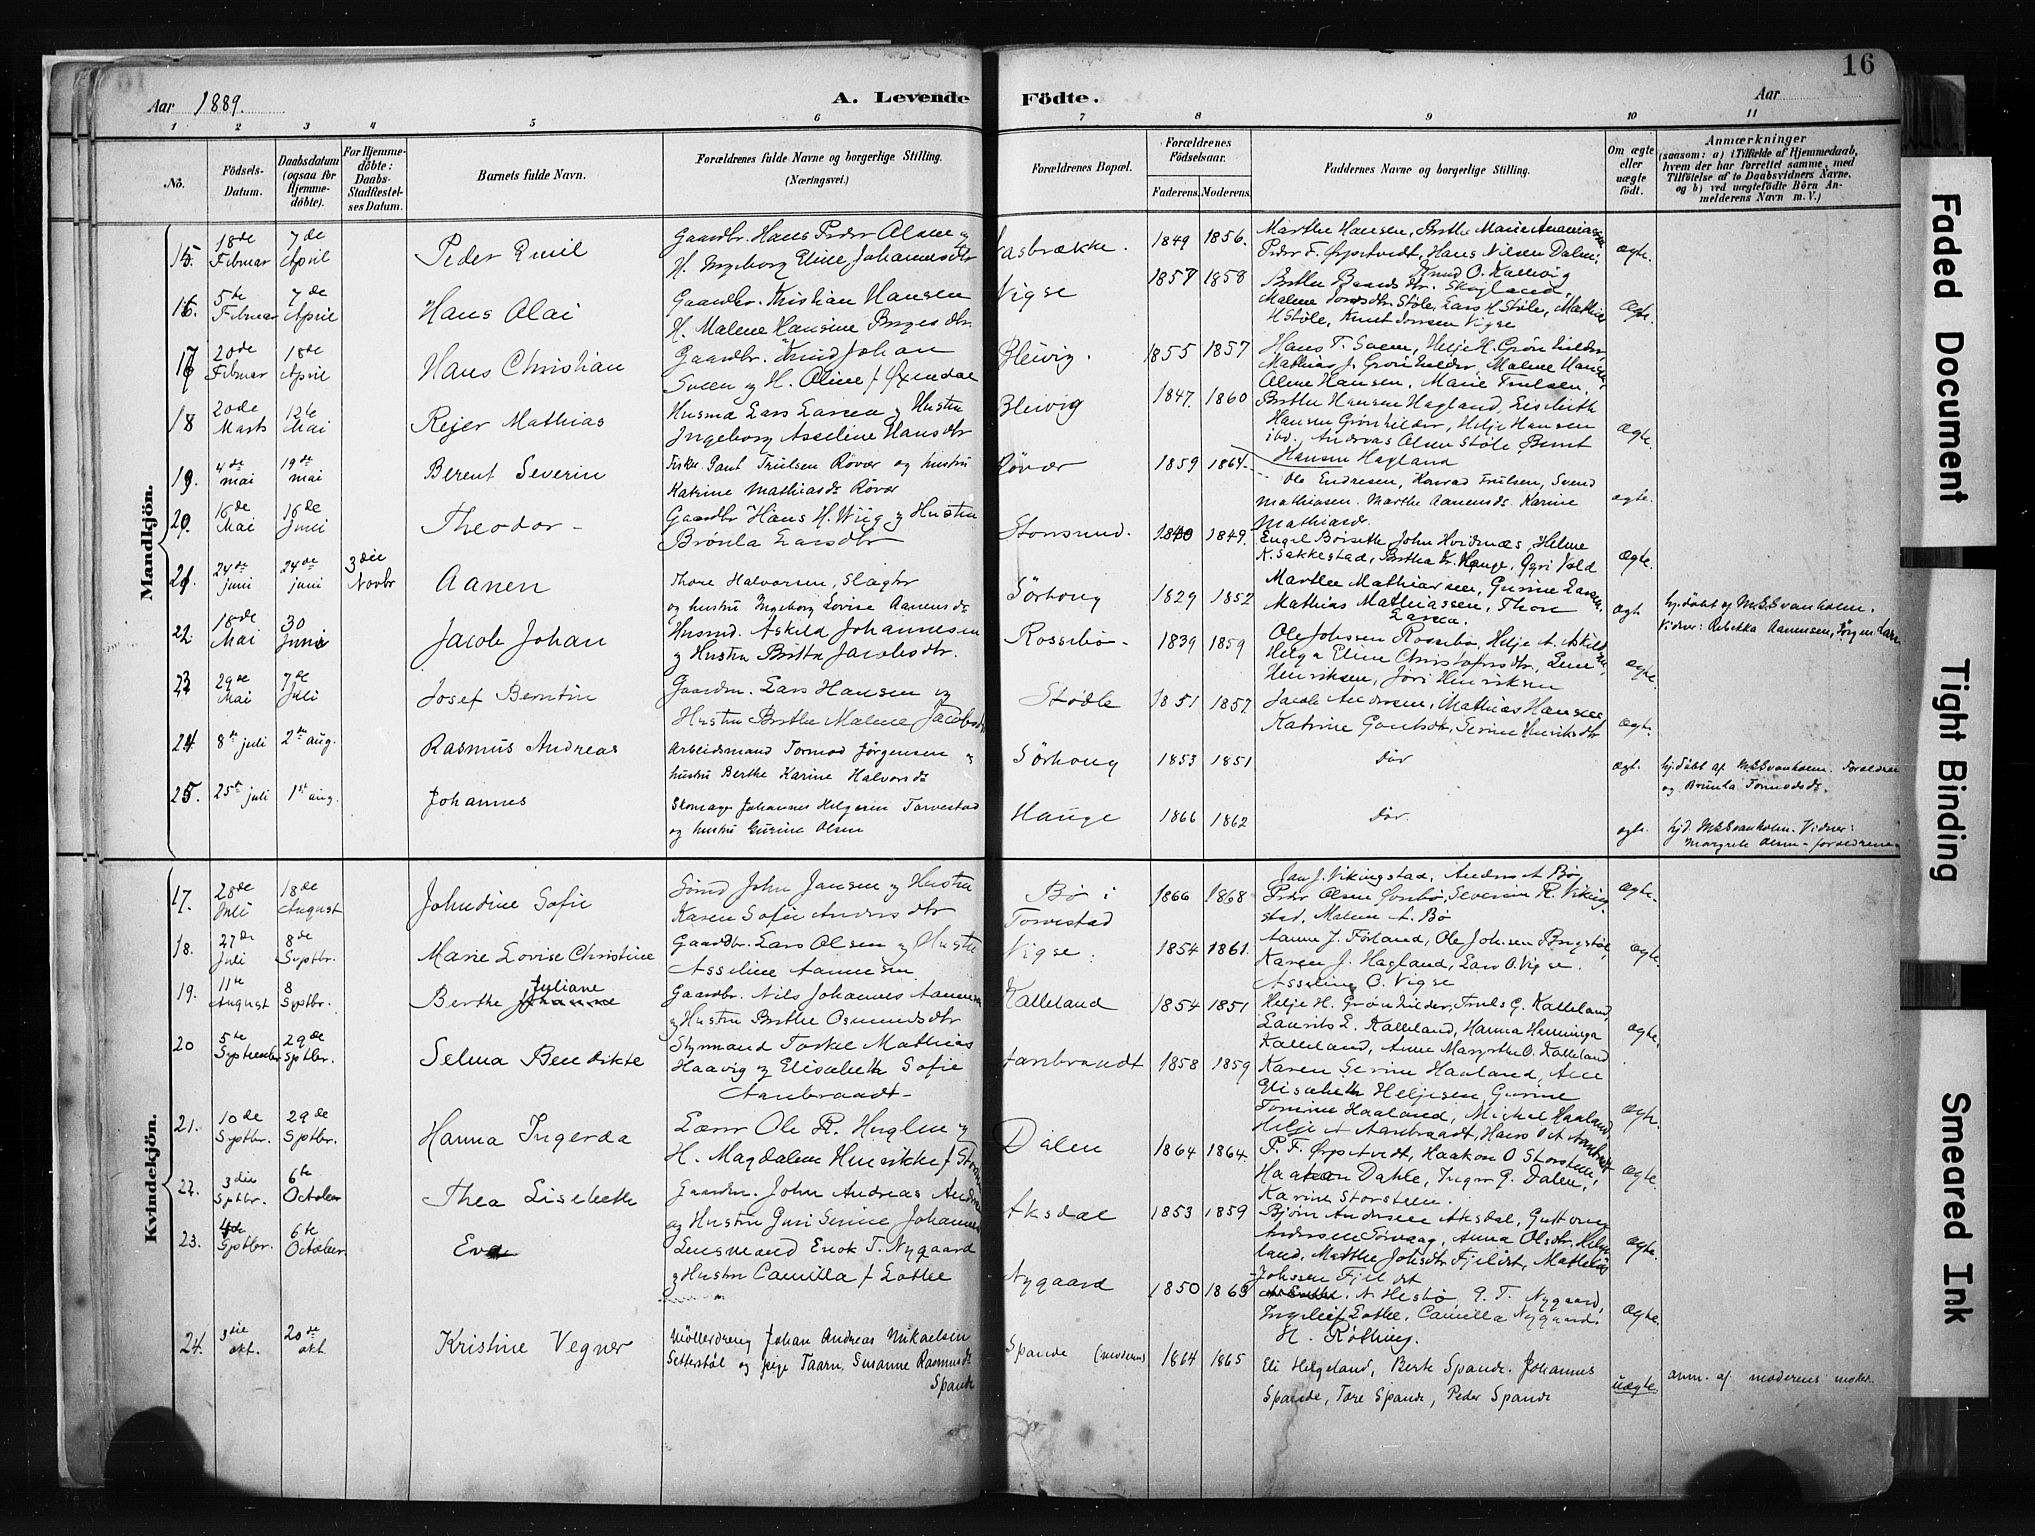 16
Aar 1889.
A. Levende Födte.
Aar
1 2 3 4 5 6 7 8 9 10 11
No.
Födsels-Datum.
Daabsdatum (ogsaa for Hjemme-döbte).
For Hjemme-döbte: Daabs-Stadfæstel-ses Datum.
Barnets fulde Navn.
Forældrenes fulde Navne og borgerlige Stilling. (Næringsvei.)
Forældrenes Bopæl.
Forældrenes Födselsaar.
Faderens. Moderens.
Faddernes Navne og borgerlige Stilling.
Om ægte eller uægte födt.
Anmærkninger
(saasom: a) i Tilfælde af Hjemmedaab,
hvem der har forrettet samme, med
Tilföielse af to Daabsvidners Navne,
og b) ved uægtefödte Börn An-
melderens Navn m. V.)
Mandkjön.
15. 18de Februar 7de April Peder Emil
Gaardbr. Hans Peder Olsen og
H. Ingeborg Eline Johannesdtr
1849 1856.
Marthe Hansen, Berthe Marie
Peder F. Ørpetvedt, Hans Nilsen Dalen,
Knud O. Kallevig
ægte.
16. 5te Februar 7de April Hans Olai
Gaardbr. Kristian Hansen
H. Malene Hansine Børgesdtr.
Vigse 1857 1858
Berthe Skogland,
Malene Støle, Lars H Støle, Mathias
H Støle, Knut Vigse
Ægte.
17 20de Februar 18de April Hans Christian
Gaardbr. Knud Johan
Sveen og H. Oline f. Øxendal
Bleivig. 1855 1857
Hans T. Sveen, Helje H. Grønhilder,
Mathias J. Grønhilder, Malene Hansen,
Oline Hansen, Marie Trulsen,
18 20de Marts 12te Mai Rejer Mathias
Husmd Lars Larsen og Hustru
Ingeborg Asseline Hansdtr
Bleivig 1847. 1860
Berthe Hansen Hagland, Lisebeth
Hansen Grønhilder, Helje Hansen
ibd., Andreas Olsen Støle, Bernt
Hansen Hagland
ægte.
19 4de mai 19de mai Berent Severin
Fisker Gaut Trulsen Røvær og hustru
Katrine Mathiasdr Røvær
Røvær 1859 1864.
Ole Endresen, Konrad Trulsen, Svend
Mathiasen. Marthe Aanensdr. Karine
Mathiasdr.
ægte.
20. 16de Mai 16de Juni Theodor -
Gaardbr Hans H. Wiig og Hustru
Brønla Larsdtr
Storsund. 1840 1849.
Engel Børseth, John Hvidnæs, Helene
K. Sakkestad, Berthe Kr. Hauge, Gyri Vold
Ægte.
21. 24de juni 24de juni 3die Novbr Aanen
Thore Halvorsen, Slagter
og hustru Ingeborg Lovise Aanensdr
Sørhoug 1829 1852
Marthe Mathiassen, Gurine Larsen,
Mathias Mathiassen, Thore
Larsen.
ægt.
hj. döbt af M.S. Svanholm.
Vidner: Rebekka Aanensen, Jørgen Larsen
22. 18de Mai 30 Juni Jacob Johan
Husmd. Askild Johannesen
og Hustru Britta Jacobsdtr.
Rossebø - 1839 1859
Ole Johssen Rossebø, Helje A. Askildsen,
Helga Eline Christofersdtr, Lene
Henriksen, Jori Henriksen
ægte.
23 29de Mai 7de Juli Josef Berntin
Gaardm. Lars Hansen og
Hustru Berthe Malene Jacobsdtr
Stødle 1851 1857.
Jacob Andersen, Mathias Hansen
Katrine Gautsdtr, Serine Henriksdtr
ægte.
24 8de juli 2de aug. Rasmus Andreas
Arbeidsmand Tormod Jørgensen og
hustru Berthe Karine Halvorsdr
Sørhoug 1853 1851 dør ægt.
hj. döbt af M.S. Svanholm. Foreldrene
og Brünla Tormodsdr.
25. 25de juli 1st aug. Johannes
Skomager Johannes Helgesen Torvestad
og hustru Gurine Olsen
Hauge 1866 1862 dør. ægte.
hjd. M.S. Svanholm. Vidner:
Margrete Olsen - forældrene
Kvindekjön.
17. 28de Juli 18de August Johndine Sofie
Sømd John Jansen og Hustru
Karen Sofie Andersdtr
Bø i Torvestad 1866 1868
Jan J. Vikingstad, Anders A Bø,
Peder Olsen Ørnbø, Severin R. Viking-
stad, Malene A. Bø
Ægte.
18. 27de Juli 8de Septbr. Marie Lovise Christine
Gaardbr. Lars Olsen og Hustru
Asseline Aanensen
Vigse. 1854 1861.
Aanen J. Førland, Ole Johsen
Karen J. Hagland, Lars O. Vigse.
Asseline O. Vigse
Ægte.
19. 11te August 8 Septbr. Berthe Johanne Juliane
Gaardbr. Nils Johannes Aanensen
og Hustru Berthe Osmundsdtr
Kalleland 1854 1851
Helje H. Grønhilder, Truls G. Kalleland,
Laurits L. Kalleland, Hanna Henninga
Kalleland, Anne Margrethe O. Kalleland
Ægte.
20 5te September 29de Sptbr. Selma Bendikte
Styrmand Torkel Mathias
Haavig og Elisabeth Sofie
Aanbraadt -
1858 1859
Karen Serine Haaland, Ane
Elisabeth Heljesen, Gurine
Tomine Haaland, Mickel Haaland,
Helje A Aanbraadt, Hans O A Aanbradt
Ægte.
21. 10de Septbr. 29de Sptbr. Hanna Ingerda
Lærer Ole R. Huglen og
H. Magdalene Henrikke f. Storsteen
Dalen 1864 1864.
P. F. Ørpetvedt, Haakon O Storsteen,
Haakon Dahle, Inger G. Dalen,
Karine Storsteen.
Ægte.
22. 3die Sptbr. 6te October Thea Lisebeth
Gaardm. John Andreas Andersen
og Hustru Guri Serine Johannesdtr
Aksdal 1853 1859
Bjørn Andersen Aksdal, Guttorm
Andersen Førvaag, Anna Olsdtr. Helge-
land, Marthe Johsdtr Fjeldet, Mathias
Johssen Fjeldet
Ægte.
23. 4de Sptbr. 6te October Eva
Lensmand Enok T. Nygaard
og Hustru Camilla f Lothe
Nygaard 1850 1863
A Hestø, P. T. Nygaard,
Ingeleif Lothe, Camilla Nygaard,
H. Røthing.
Ægte.
24. 3die okt. 20de okt. Kristine Vegner
Møllerdreng Johan Andreas Mikaelsen
Setterstøl og pige Taarn. Susanne Rasmusdr
Spande
Spande (moderen) 1864 1865
Eli Helgeland, Berte Spande. Johannes
Spande, Tore Spande, Peder Spande
uægte.
anm. af moderens moder.
Faded Document
Tight Binding
Smeared Ink